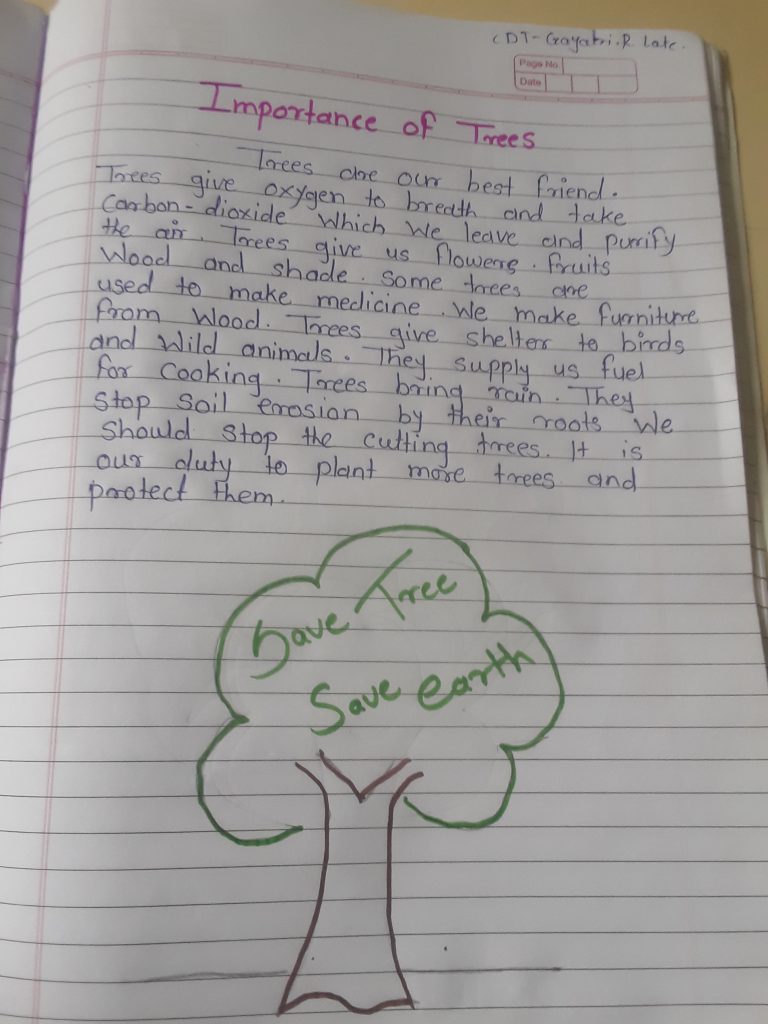 CDT-Gayatri.R. Late.
Page No.
Date
Importance of Trees
Trees are our best friend.
Trees give oxygen to breath and take
Carbon-dioxide which we leave and purify
the air. Trees give us flowers. fruits
Wood and shade. some trees are
used to make medicine. We make furniture
from wood. Trees give shelter to birds
and wild animals. They supply us fuel
for cooking. Trees bring rain. They
stop soil erosion by their roots We
should stop the cutting trees. It is
our duty to plant more trees and
protect them.
Save Tree
Save earth